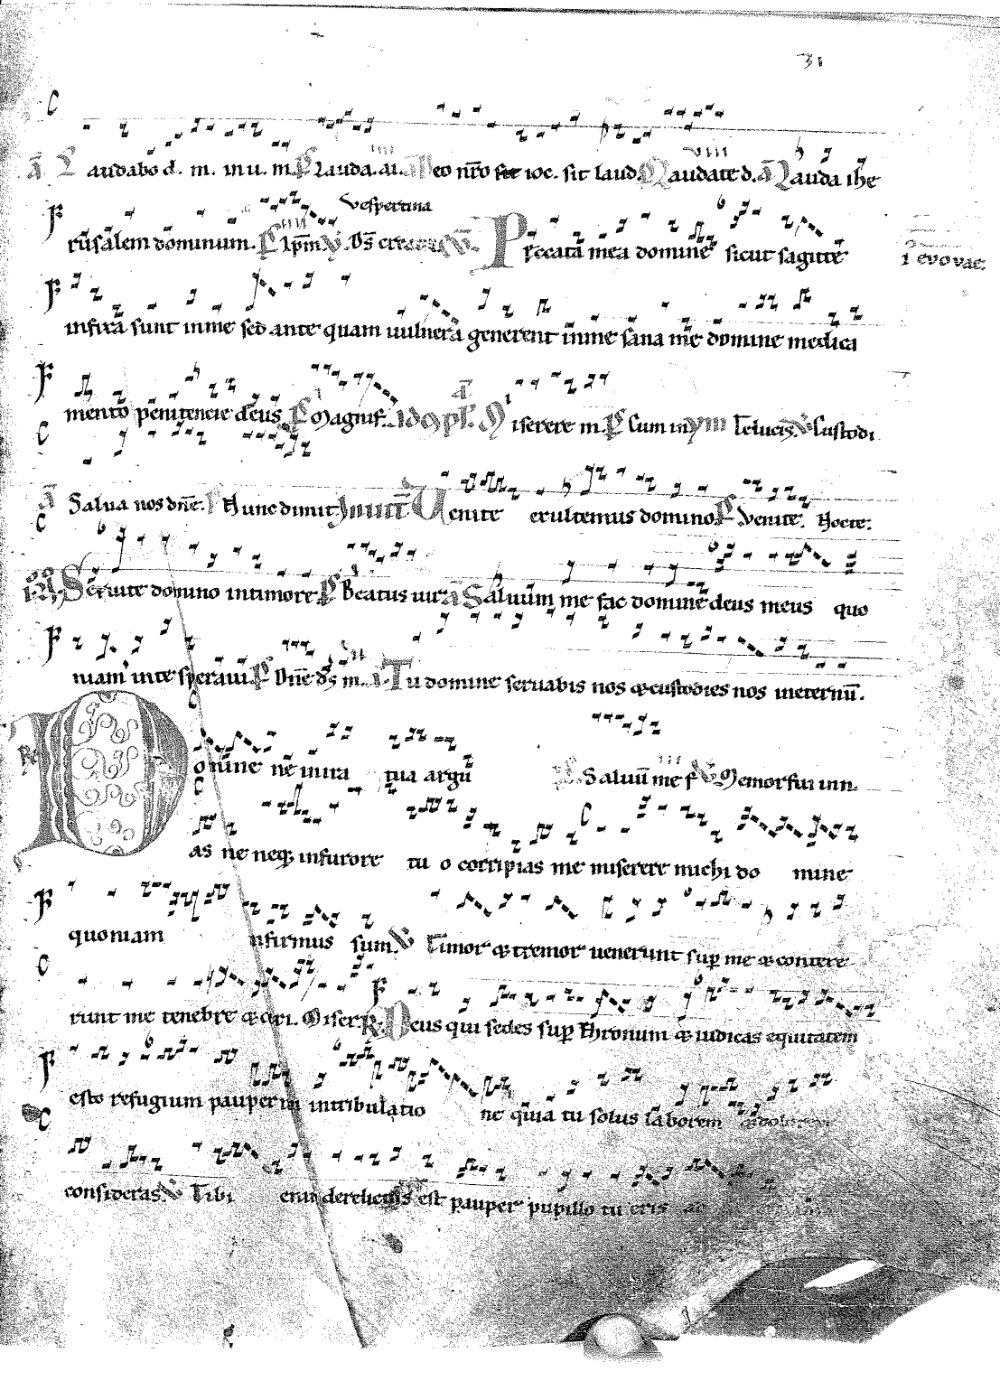 31
Laudabo d. m. in u. m. p̄s Lauda. ai. ā Deo nr̄o ioc. sit laud. Laudate d. ā Lauda ihe
Vespertina
rusalem dominum. Ds̄ Peccata mea domine sicut sagitte
euovae.
infixa sunt in me sed ante quam uulnera generent in me sana me domine medica
mento penitencie deus Magnif. Miserere m. Cum in Custodi
Salua nos dn̄e. Nunc dimit Inuit Uenite exultemus domino Venite. Nocte:
Seruite domino in timore Beatus uir ā Saluum me fac domine deus meus quo
niam in te speraui. Dn̄e ds̄ m. ā Tu domine seruabis nos & custodies nos in eternū.
Domine ne in ira tua argu Saluū me f Memor fui inn.
as ne neq; in furore tu o corripias me miserere michi do mine
quoniam infirmus sum. Timor & tremor uenerunt sup me & contere
runt me tenebre Miser R. Deus qui sedes sup thronum & iudicas equitatem
esto refugium pauperum in tribulatio ne quia tu solus laborem
consideras. Tibi enim derelictus est pauper pupillo tu eris